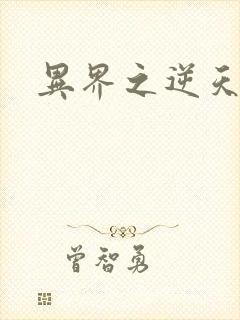 異界之逆天
曾智勇